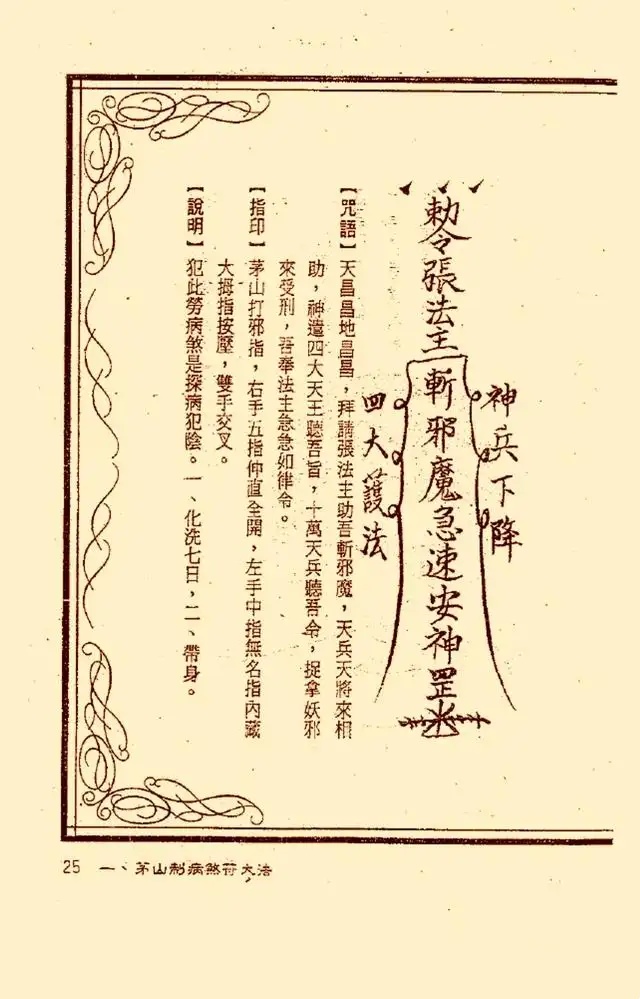 勅令張法主斬邪魔急速安神罡
神兵下降
四大護法
【咒語】天昌昌地昌昌，拜請張法主助吾斬邪魔，天兵天將來相
助，神遣四大天王聽吾旨，十萬天兵聽吾令，捉拿妖邪
來受刑，吾奉法主急急如律令。
【指印】茅山打邪指，右手五指伸直全開，左手中指無名指內藏
大拇指按壓，雙手交叉。
【說明】犯此勞病煞是探病犯陰。一、化洗七日，二、帶身。
25 一、茅山制病煞符大法